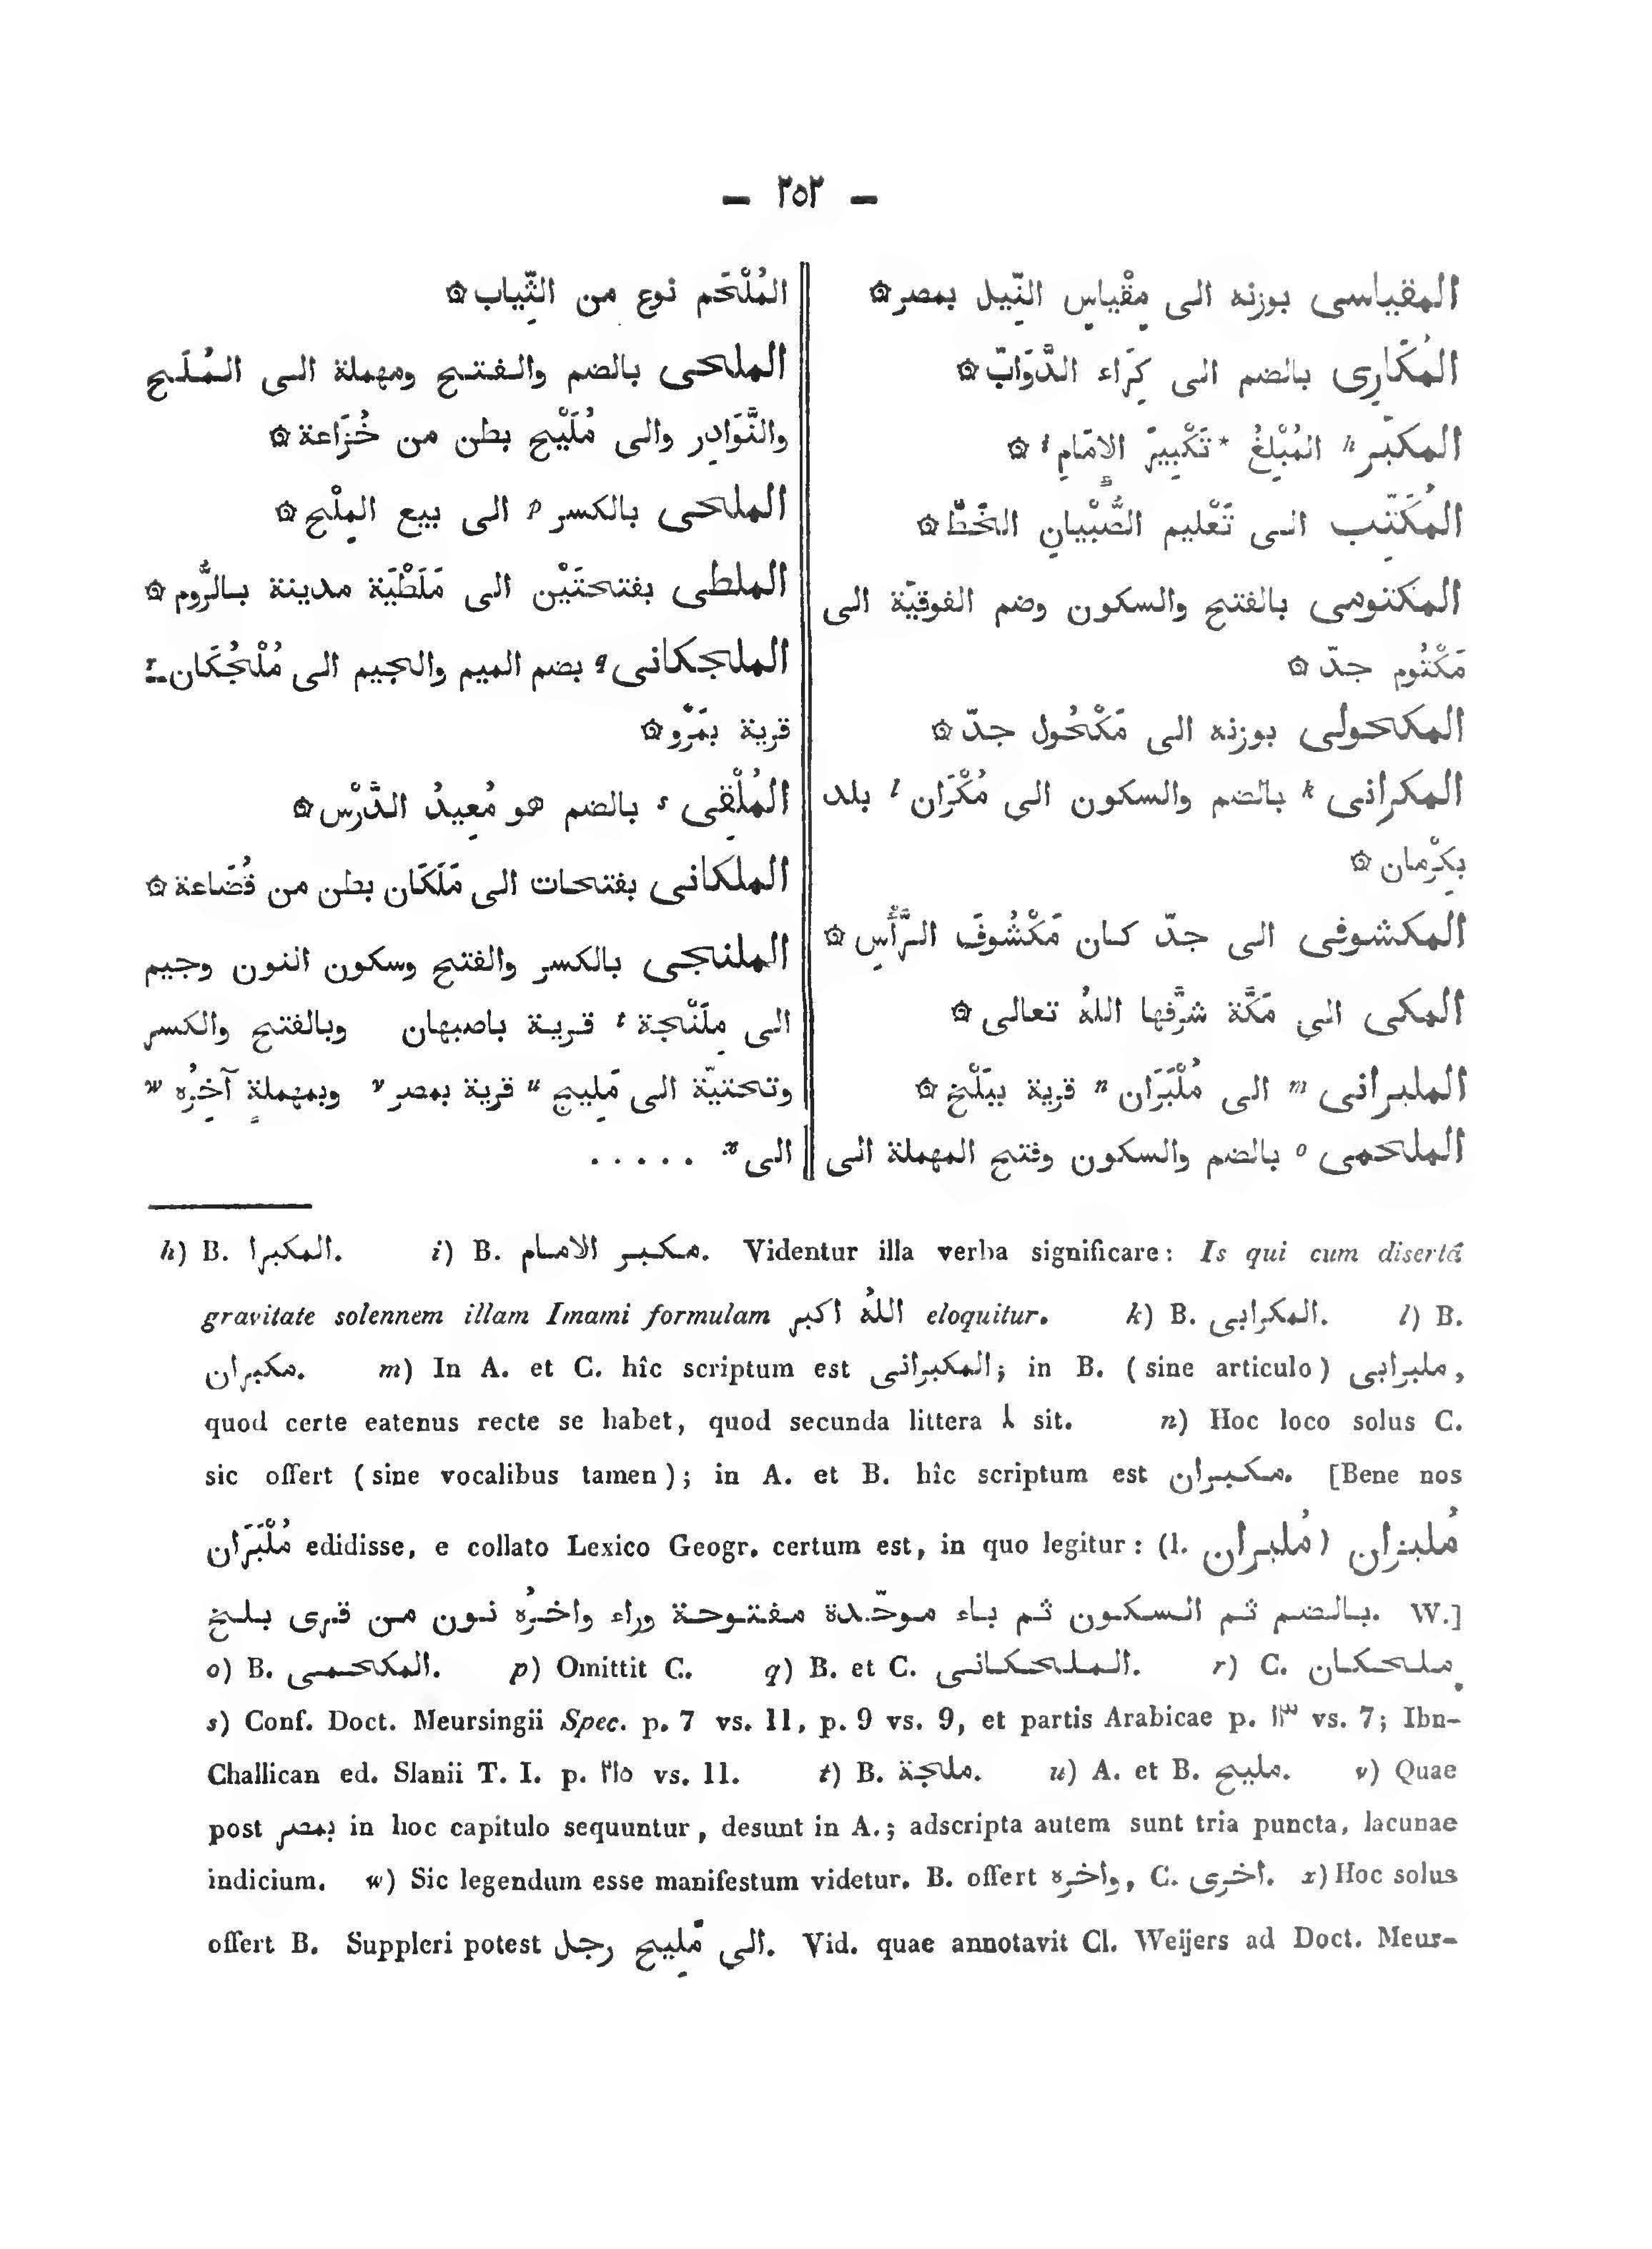 — ٢٥٢ —
المقياسى بوزنه الى مِقْياسِ النِّيل بمصر ۞
المُكَارِى بالضم الى كِرَاء الدَّوَابّ ۞
المكبّر h المُبْلِغُ * تَكْبِيرَ الإِمَامِ i ۞
المُكَتِّب الى تَعْليم الصُّبْيانِ الخَطَّ ۞
المكتومى بالفتح والسكون وضم الفوقيّة الى
مَكْتُوم جدّ ۞
المكحولى بوزنه الى مَكْحُول جدّ ۞
المكرانى k بالضم والسكون الى مُكْرَان l بلد
بكِرْمان ۞
المكشوفى الى جدّ كان مَكْشُوفَ الرَّأْسِ ۞
المكى الى مَكَّة شرَّفها اللهُ تعالى ۞
الملبرانى m الى مُلْبَرَان n قرية ببَلْخ ۞
الملحمى o بالضم والسكون وفتح المهملة الى
المُلْحَم نوع من الثِّياب ۞
الملحى بالضم والفتح ومهملة الى المُلَح
والنَّوَادِر والى مُلَيْح بطن من خُزَاعة ۞
الملحى بالكسر p الى بيع المِلْح ۞
الملطى بفتحتَيْن الى مَلَطْيَة مدينة بالرُّوم ۞
الملجكانى q بضم الميم والجيم الى مُلْجُكَان r
قرية بمَرْو ۞
المُلْقِى s بالضم هو مُعِيدُ الدَّرْس ۞
الملكانى بفتحات الى مَلَكَان بطن من قُضَاعة ۞
الملنجى بالكسر والفتح وسكون النون وجيم
الى مِلَنْجة t قرية باصبهان وبالفتح والكسر
وتحتيّة الى مَلِيج u قرية بمصر v وبمهملةٍ آخِرُه w
الى x . . . . .
h) B. المكبرا. i) B. مكبر الامام. Videntur illa verba significare: Is qui cum disertâ
gravitate solennem illam Imami formulam اللهُ اكبر eloquitur. k) B. المكرابى. l) B.
مكبران. m) In A. et C. hîc scriptum est المكبرانى; in B. (sine articulo) ملبرابى,
quod certe eatenus recte se habet, quod secunda littera ل sit. n) Hoc loco solus C.
sic offert (sine vocalibus tamen); in A. et B. hîc scriptum est مكبران. [Bene nos
مُلْبَرَان edidisse, e collato Lexico Geogr. certum est, in quo legitur: مُلبزان (l. مُلبران)
بالضم ثم السكون ثم باء موحّدة مفتوحة وراء واخرُه نون من قرى بلخ. W.]
o) B. المكحمى. p) Omittit C. q) B. et C. الملحكانى. r) C. ملحكان.
s) Conf. Doct. Meursingii Spec. p. 7 vs. 11, p. 9 vs. 9, et partis Arabicae p. ١٣ vs. 7; Ibn-
Challican ed. Slanii T. I. p. ٣١٥ vs. 11. t) B. ملجة. u) A. et B. مليح. v) Quae
post بمصر in hoc capitulo sequuntur, desunt in A.; adscripta autem sunt tria puncta, lacunae
indicium. w) Sic legendum esse manifestum videtur. B. offert واخره, C. اخرى. x) Hoc solus
offert B. Suppleri potest الى مَلِيح رجل. Vid. quae annotavit Cl. Weijers ad Doct. Meur-